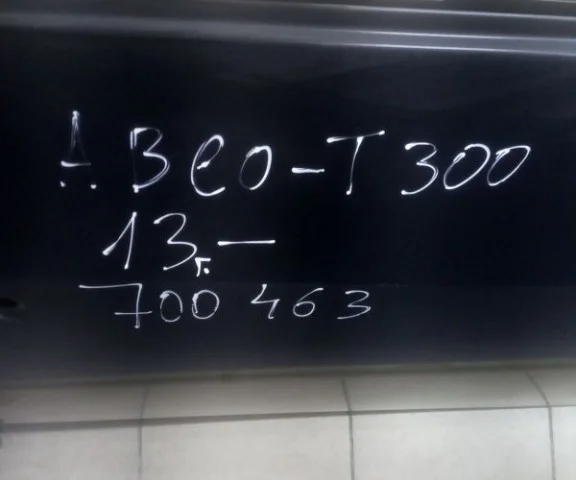 АВео-Т300
13г.-
700 463